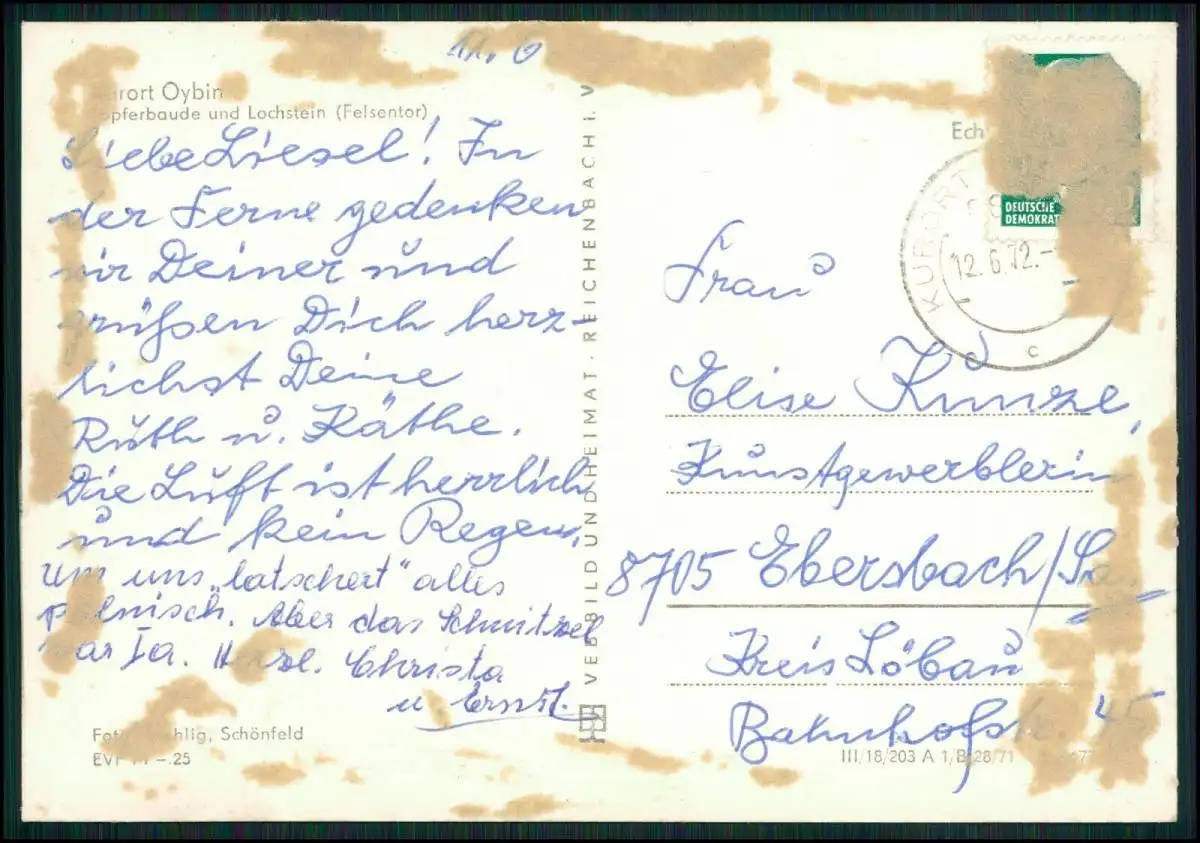 Oybin
und Lochstein (Felsentor)
Liebe Liesel! In
der Ferne gedenken
wir Deiner und
grüßen Dich herz-
lichst Deine
Ruth u. Käthe.
Die Luft ist herrlich
und kein Regen.
Um uns „latschert“ alles
polnisch. Aber das Schnitzel
war Ia. Herzl. Christa
u. Ernst.
Schönfeld
VEB BILD UND HEIMAT · REICHENBACH I. V
Ech
DEUTSCHE
DEMOKRAT
KURORT
12.6.72.-
c
Frau
Elise Kunze,
Kunstgewerblerin
8705 Ebersbach/Sa.
Kreis Löbau
Bahnhofstr. 45
III/18/203 A 1/B 28/71